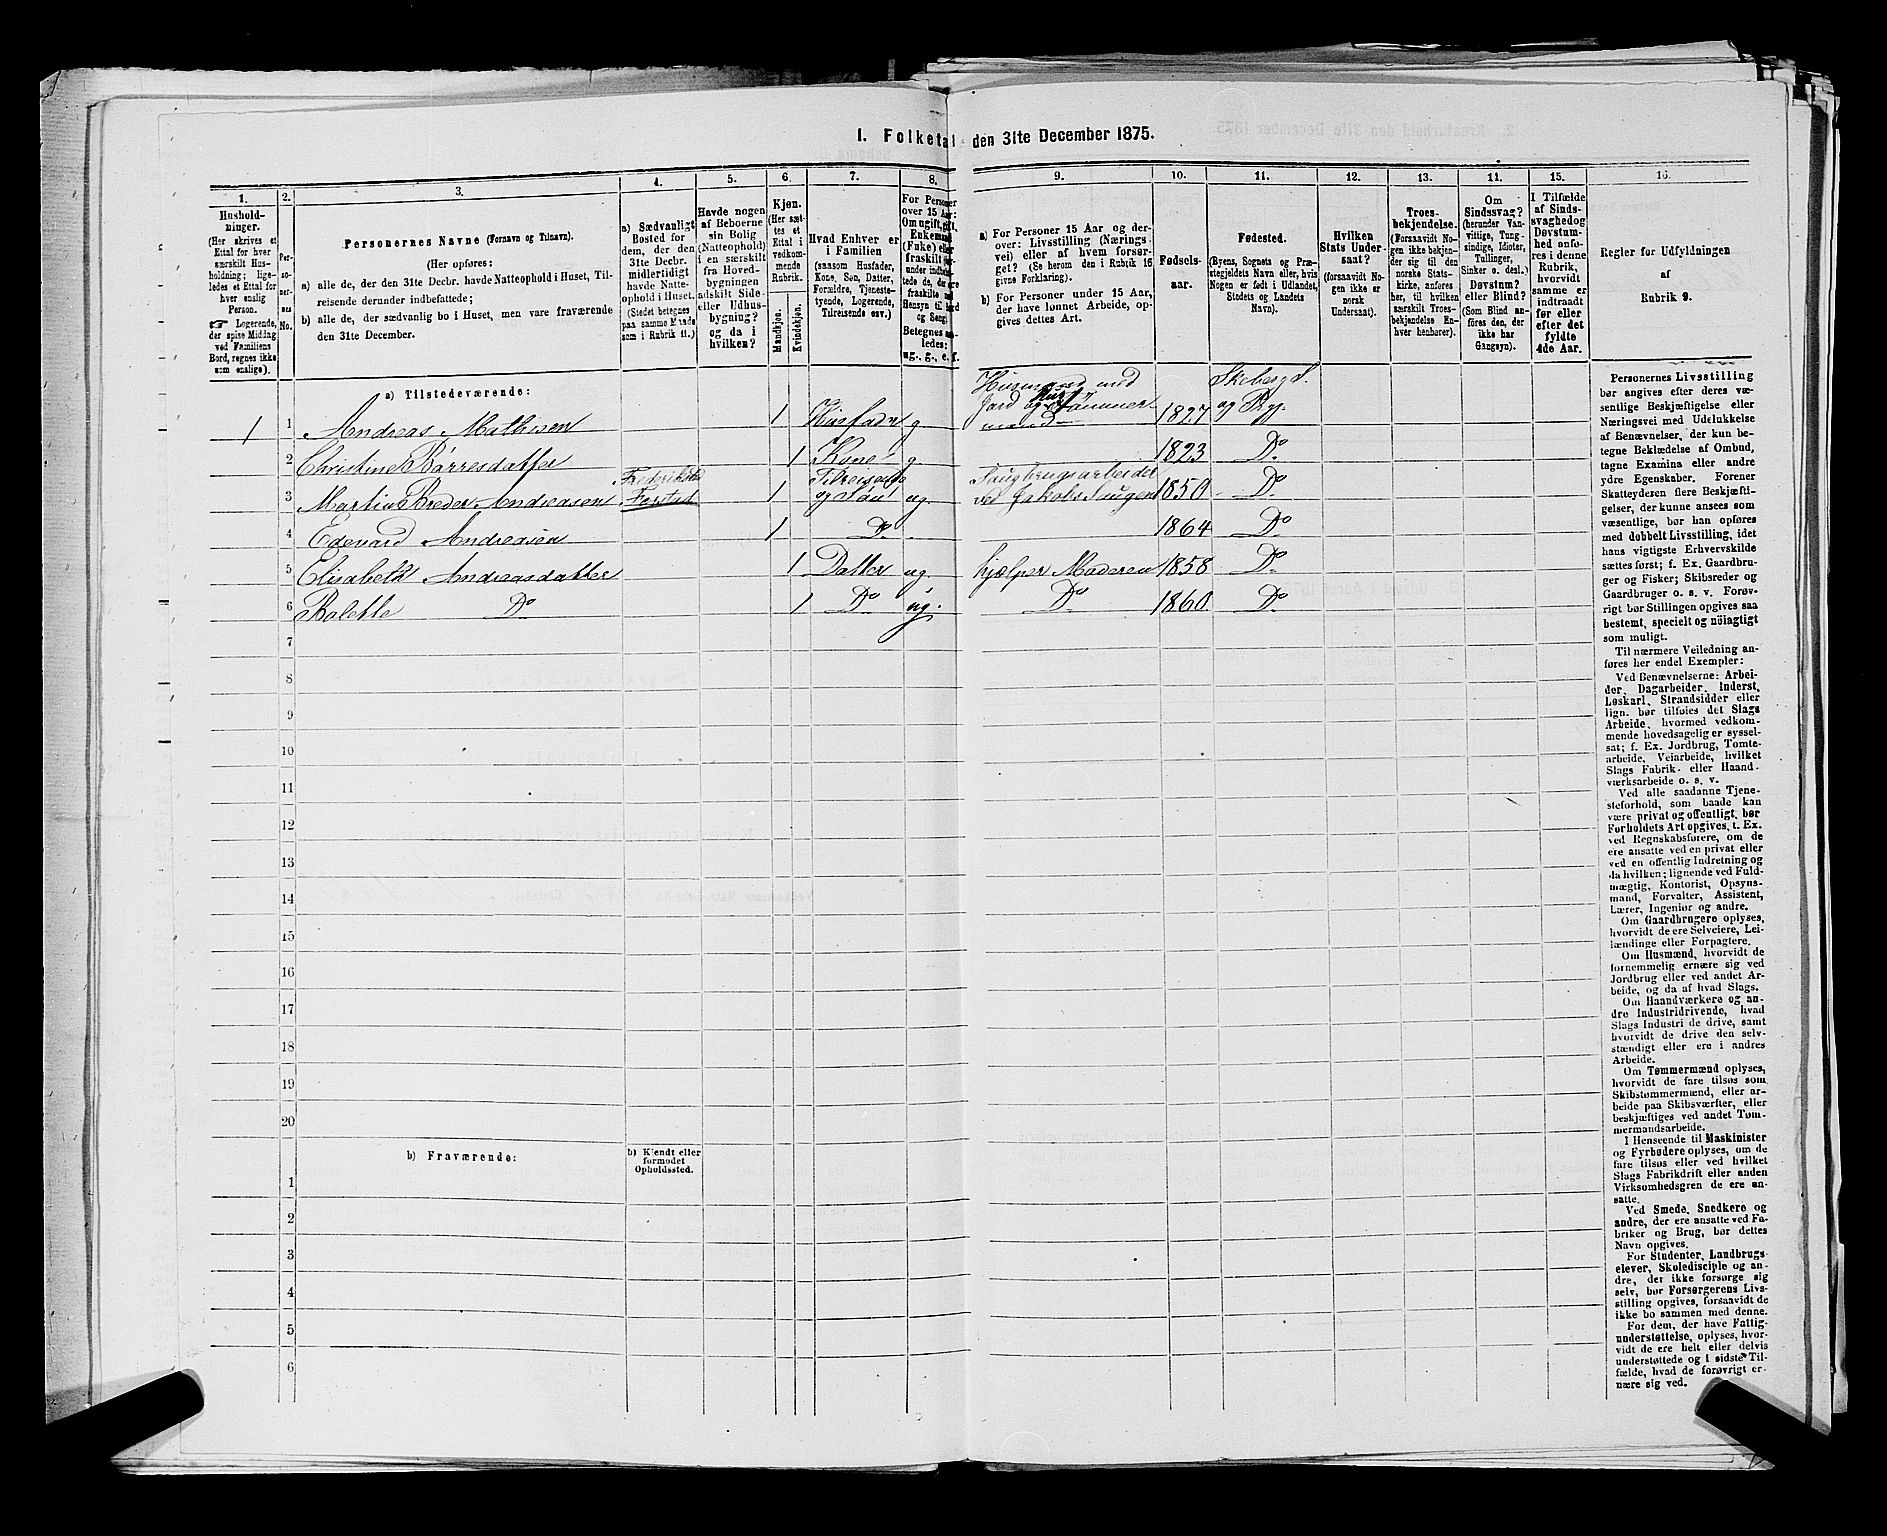 1. Folketal den 31te December 1875.
1. 2. 3. 4. 5. 6. 7. 8. 9. 10. 11. 12. 13. 14. 15. 16.
Hushold-
ninger.
(Her skrives et
Ettal for hver
særskilt Hus-
holdning; lige-
ledes et Ettal for
hver enslig
Person.
☞ Logerende,
der spise Middag
ved Familiens
Bord, regnes ikke
som enslige).
Per-
so-
ner-
nes
No.
Personernes Navne (Fornavn og Tilnavn).
(Her opføres:
a) alle de, der den 31te Decbr. havde Natteophold i Huset, Til-
reisende derunder indbefattede;
b) alle de, der sædvanlig bo i Huset, men vare fraværende
den 31te December.
a) Sædvanligt
Bosted for
dem, der den
31te Decbr.
midlertidigt
havde Natte-
ophold i Huset.
(Stedet betegnes
paa samme Maade
som i Rubrik 11.)
Havde nogen
af Beboerne
sin Bolig
(Natteophold)
i en særskilt
fra Hoved-
bygningen
adskilt Side-
eller Udhus-
bygning?
og da i
hvilken?
Kjøn.
(Her sæt-
tes et
Ettal i
vedkom-
mende
Rubrik.
Mandkjøn.
Kvindekjøn.
Hvad Enhver er
i Familien
(saasom Husfader,
Kone, Søn, Datter,
Forældre, Tjeneste-
tyende, Logerende,
Tilreisende osv.)
For Personer
over 15 Aar:
Om ugift, gift,
Enkemand
(Enke) eller
fraskilt
Betegnes saa-
ledes:
ug., g., e. f.
a) For Personer 15 Aar og der-
over: Livsstilling (Nærings-
vei) eller af hvem forsør-
get? (Se herom den i Rubrik 16
givne Forklaring).
b) For Personer under 15 Aar,
der have lønnet Arbeide, op-
gives dettes Art.
Fødsels-
aar.
Fødested.
(Byens, Sognets og Præ-
stegjeldets Navn eller, hvis
Nogen er født i Udlandet,
Stedets og Landets
Navn).
Hvilken
Stats Under-
saat?
(forsaavidt No-
gen ikke er
norsk
Undersaat).
Troes-
bekjendelse.
(Forsaavidt No-
gen ikke bekjen-
der sig til den
norske Stats-
kirke, anføres
her, til hvilken
særskilt Troes-
bekjendelse En-
hver henhører).
Om
Sindssvag?
(herunder Van-
vittige, Tung-
sindige, Idioter,
Tullinger,
Sinker o. desl.)
Døvstum?
eller Blind?
(Som Blind an-
føres den, der
ikke har
Gangsyn).
I Tilfælde
af Sinds-
svaghed og
Døvstum-
hed anfø-
res i denne
Rubrik,
hvorvidt
samme er
indtraadt
før eller
efter det
fyldte
4de Aar.
Regler for Udfyldningen
af
Rubrik 9.
a) Tilstedeværende:
1 1 Andreas Mathisen 1 Husfader g Husmand med Jord og Tømmermand 1827
2 Christine Børresdatter 1 Kone g 1823 Do
3 Martin Andreasen Frederikstad 1 Tilreisende og Søn ug. Saugbrugsarbeider ved 1850 Do
4 Edevard Andreasen 1 Do 1864 Do
5 Elisabeth Andreasdatter 1 Datter ug. hjælper Moderen 1858 Do
6 Bolette Do 1 Do ug. Do 1860 Do
7
8
9
10
11
12
13
14
15
16
17
18
19
20
b) Fraværende:
b) Kjendt eller
formodet
Opholdssted.
1
2
3
4
5
6
Personernes Livsstilling
bør angives efter deres væ-
sentlige Beskjæftigelse eller
Næringsvei med Udelukkelse
af Benævnelser, der kun be-
tegne Beklædelse af Ombud,
tagne Examina eller andre
ydre Egenskaber. Forener
Skatteyderen flere Beskjæfti-
gelser, der kunne ansees som
væsentlige, bør han opføres
med dobbelt Livsstilling, idet
hans vigtigste Erhvervskilde
sættes først; f. Ex. Gaardbru-
ger og Fisker; Skibsreder og
Gaardbruger o. s. v. Forøv-
rigt bør Stillingen opgives saa
bestemt, specielt og nöiagtigt
som muligt.
Til nærmere Veiledning an-
føres her endel Exempler:
Ved Benævnelserne: Arbei-
der, Dagarbeider, Inderst,
Løskarl, Strandsidder eller
lign. bør tilføies det Slags
Arbeide, hvormed vedkom-
mende hovedsagelig er syssel-
sat; f. Ex. Jordbrug, Tomte-
arbeide, Veiarbeide, hvilket
Slags Fabrik- eller Haand-
værksarbeide o. s. v.
Ved alle saadanne Tjene-
steforhold, som baade kan
være privat og offentligt, bør
Forholdets Art opgives, t. Ex.
ved Regnskabsførere, om de
ere ansatte ved en privat eller
ved en offentlig Indretning og
da hvilken; lignende ved Fuld-
mægtig, Kontorist, Opsyns-
mand, Forvalter, Assistent,
Lærer, Ingeniør og andre.
Om Gaardbrugere oplyses,
hvorvidt de ere Selveiere, Lei-
lændinge eller Forpagtere.
Om Husmænd, hvorvidt de
fornemmelig ernære sig ved
Jordbrug eller ved andet Ar-
beide, og da af hvad Slags.
Om Haandværkere og an-
dre Industridrivende, hvad
Slags Industri de drive, samt
hvorvidt de drive den selv-
stændigt eller ere i andres
Arbeide.
Om Tømmermænd oplyses,
hvorvidt de fare tilsøs som
Skibstømmermænd, eller ar-
beide paa Skibsværfter, eller
beskjæftiges ved andet Tøm-
mermandsarbeide.
I Henseende til Maskinister
og Fyrbødere oplyses, om de
fare tilsøs eller ved hvilket
Slags Fabrikdrift eller anden
Virksomhedsgren de ere an-
satte.
Ved Smede, Snedkere og
andre, der ere ansatte ved Fa-
briker og Brug, bør dettes
Navn opgives.
For Studenter, Landbrugs-
elever, Skoledisciple og an-
dre, der ikke forsørge sig
selv, bør Forsørgerens Livs-
stilling opgives, forsaavidt de
ikke bo sammen med denne.
For dem, der have Fattig-
understøttelse, oplyses, hvor-
vidt de ere helt eller delvis
understøttede og i sidste Til-
fælde, hvad de forøvrigt er-
nære sig ved.